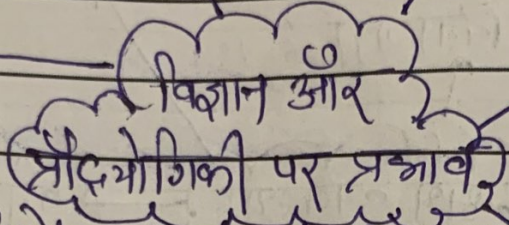 विज्ञान और
प्रौद्योगिकी पर प्रभाव